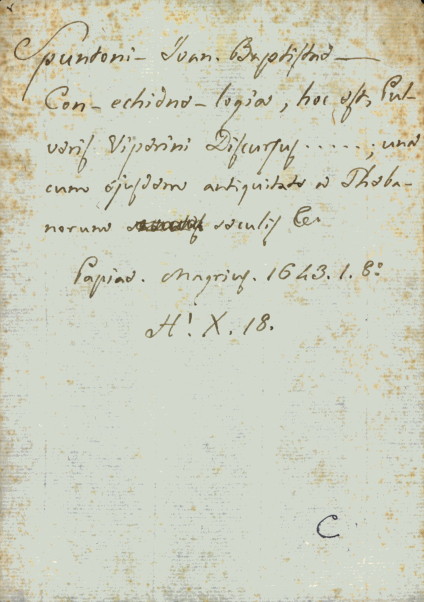 Spuntoni - Joan. Baptistæ -
Con-echidno-logia, hoc est, Pul-
veris Viperini Discursus .....; una
cum ejusdem antiquitate a Theba-
norum sæculis &c.
Papiæ. Magrius. 1643. 1. 8º
H! X. 18.
C